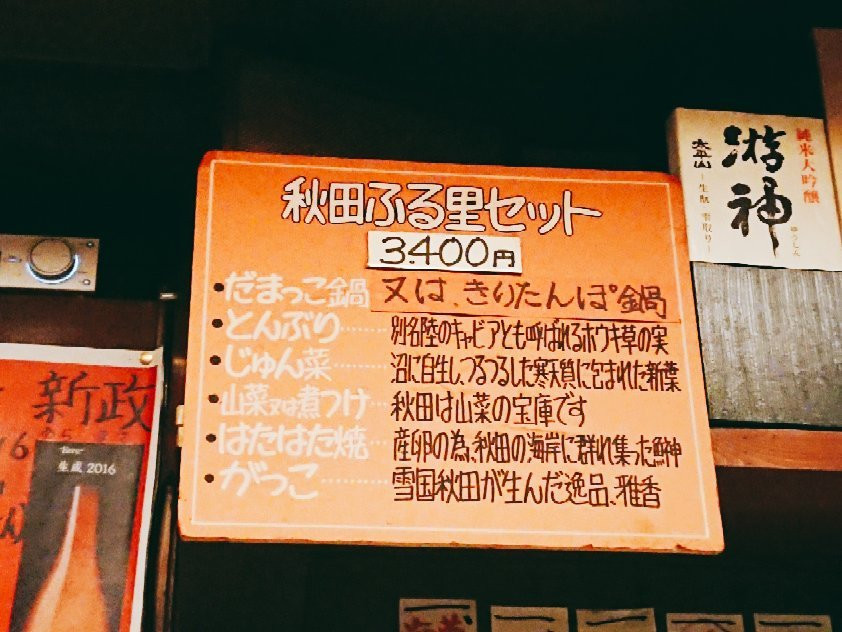 秋田ふる里セット
3.400円
・だまっこ鍋 又は、きりたんぽ鍋
・とんぶり……別名陸のキャビアとも呼ばれるホウキ草の実
・じゅん菜……沼に自生し、つるつるした寒天質に包まれた新葉
・山菜又は煮つけ…秋田は山菜の宝庫です
・はたはた焼……産卵の為、秋田の海岸に群れ集った鰰
・がっこ…………雪国秋田が生んだ逸品、雅香
純米大吟醸
游神
ゆうしん
太平山
生酛 雫取り
新政
生成 2016